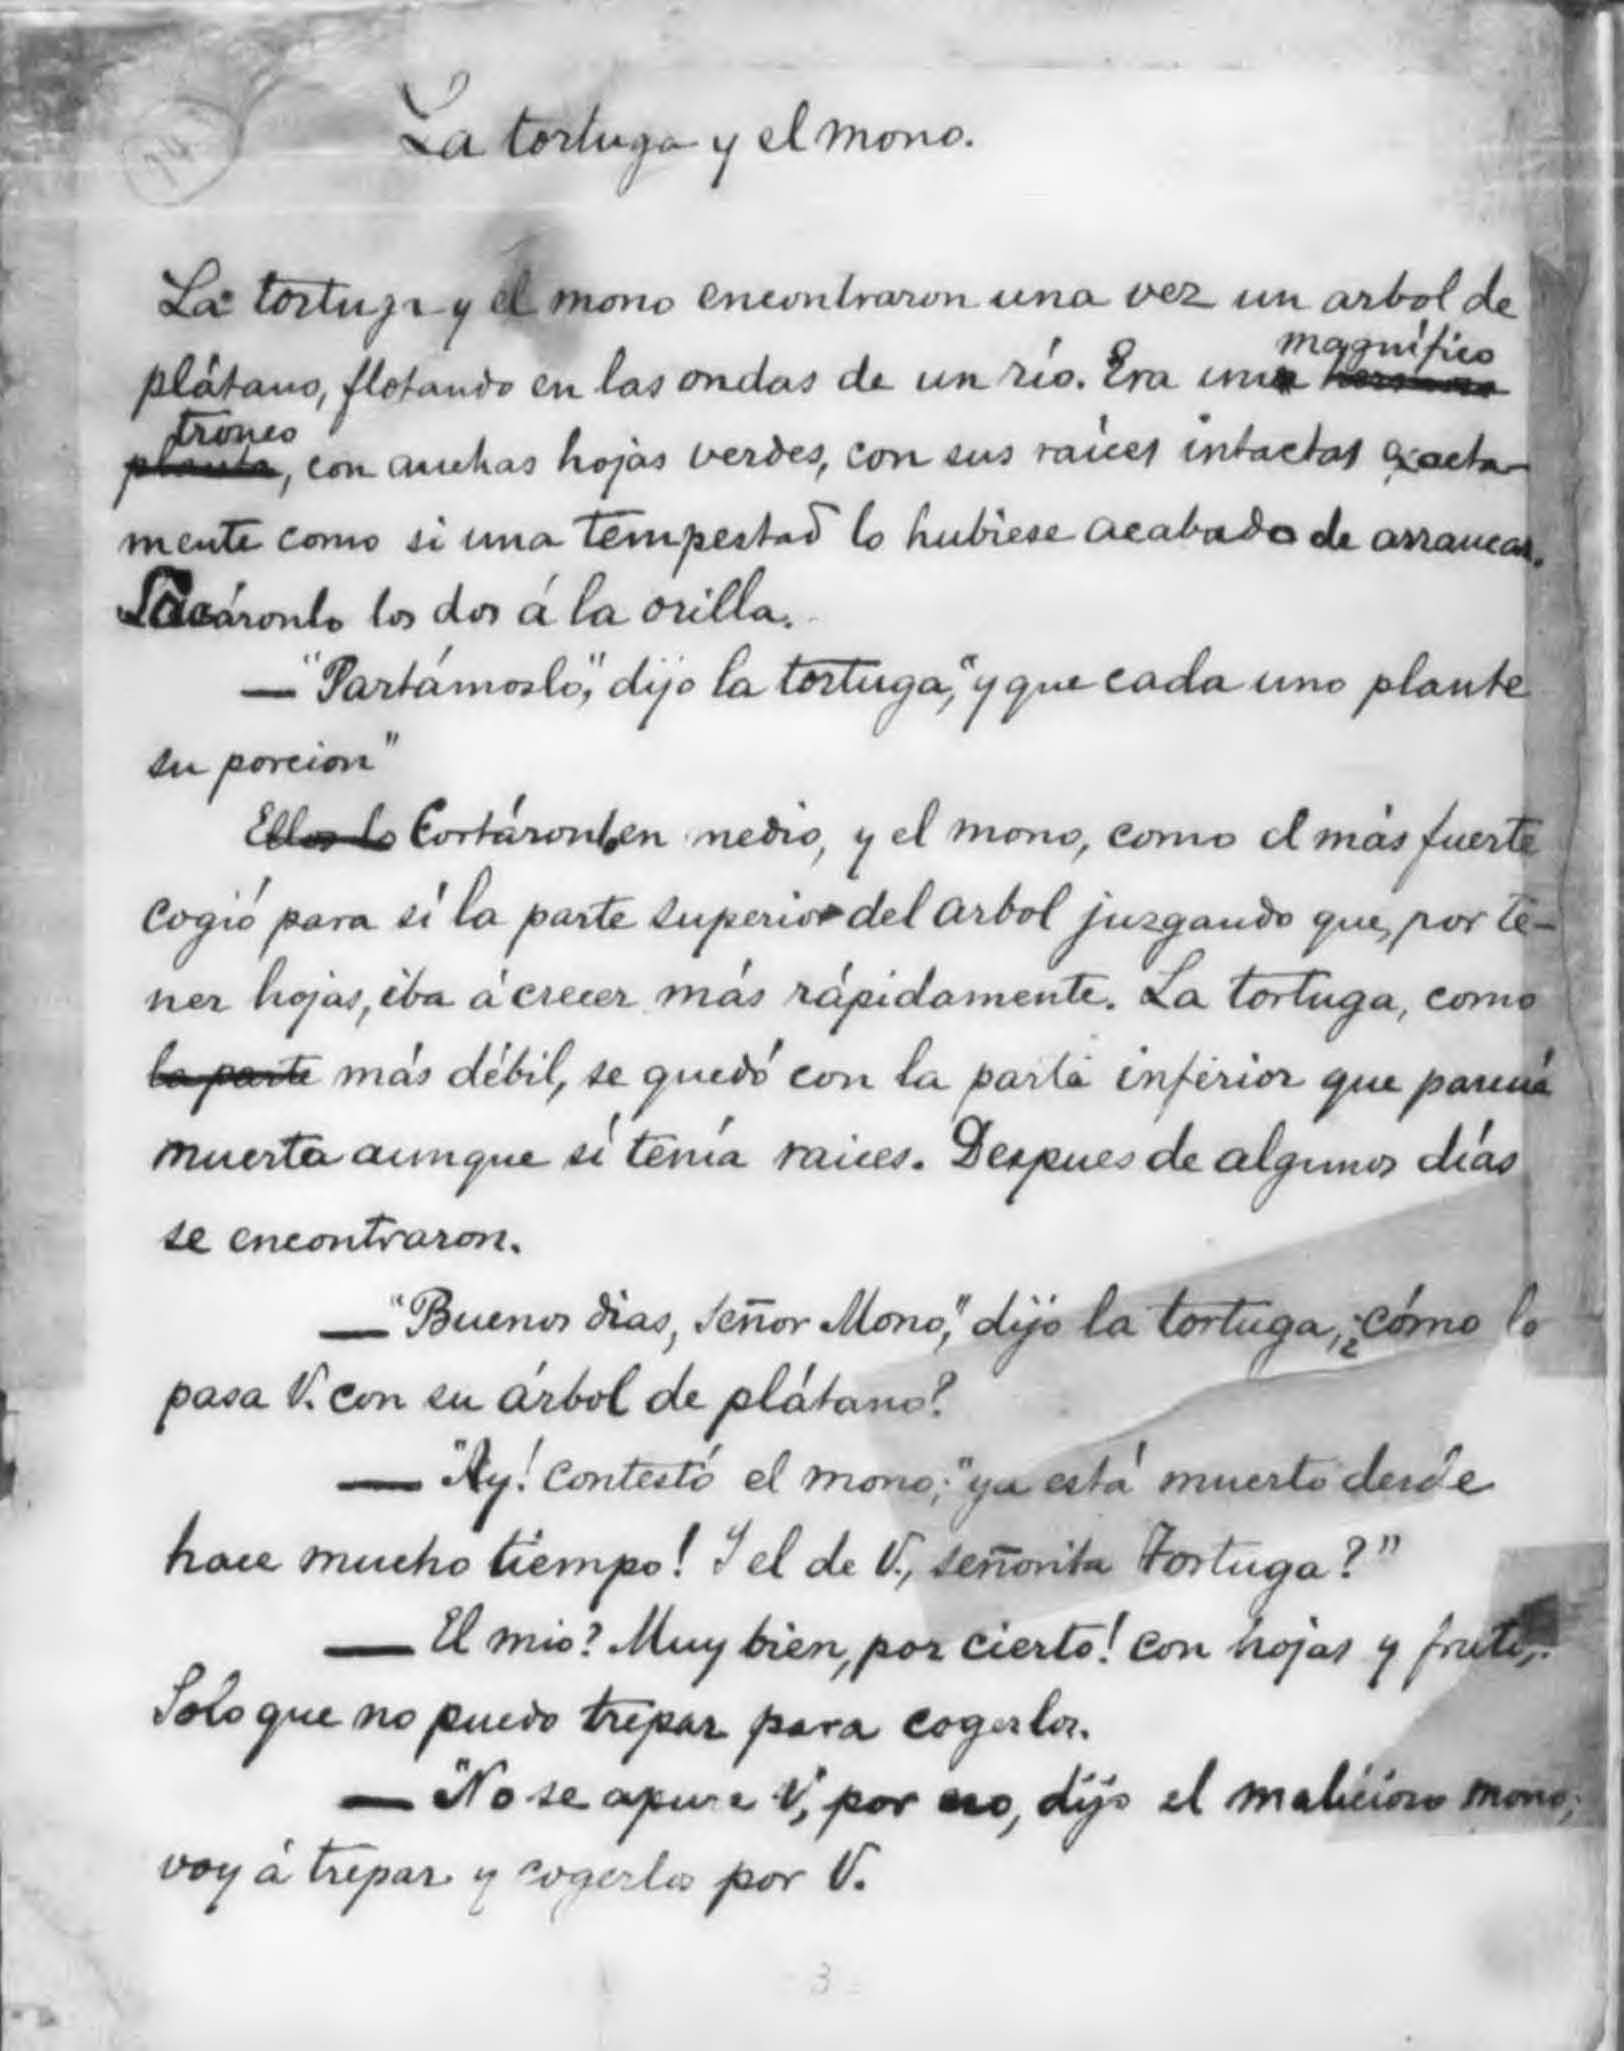 14
La tortuga y el mono.
La tortuga y el mono encontraron una vez un arbol de
magnífico
plátano, flotando en las ondas de un río. Era un
tronco
planta, con anchas hojas verdes, con sus raíces intactas exacta-
mente como si una tempestad lo hubiese acabado de arrancar.
Sacáronlo los dos á la orilla.
— "Partámoslo," dijo la tortuga, "y que cada uno plante
su porcion"
Ellos lo Cortáronlo en medio, y el mono, como el más fuerte
cogió para sí la parte superior del arbol juzgando que, por te-
ner hojas, iba á crecer más rápidamente. La tortuga, como
la parte más débil, se quedó con la parte inferior que parecía
muerta aunque sí tenía raices. Despues de algunos días
se encontraron.
— "Buenos dias, Señor Mono," dijo la tortuga, ¿cómo lo
pasa V. con su árbol de plátano?
— "Ay! contestó el mono; "ya está muerto desde
hace mucho tiempo! Y el de V., señorita Tortuga?"
— El mio? Muy bien, por cierto! con hojas y
Solo que no puedo trepar para cogerlos.
— "No se apure V, por eso, dijo el malicioso mono;
voy á trepar y cogerlos por V.
3